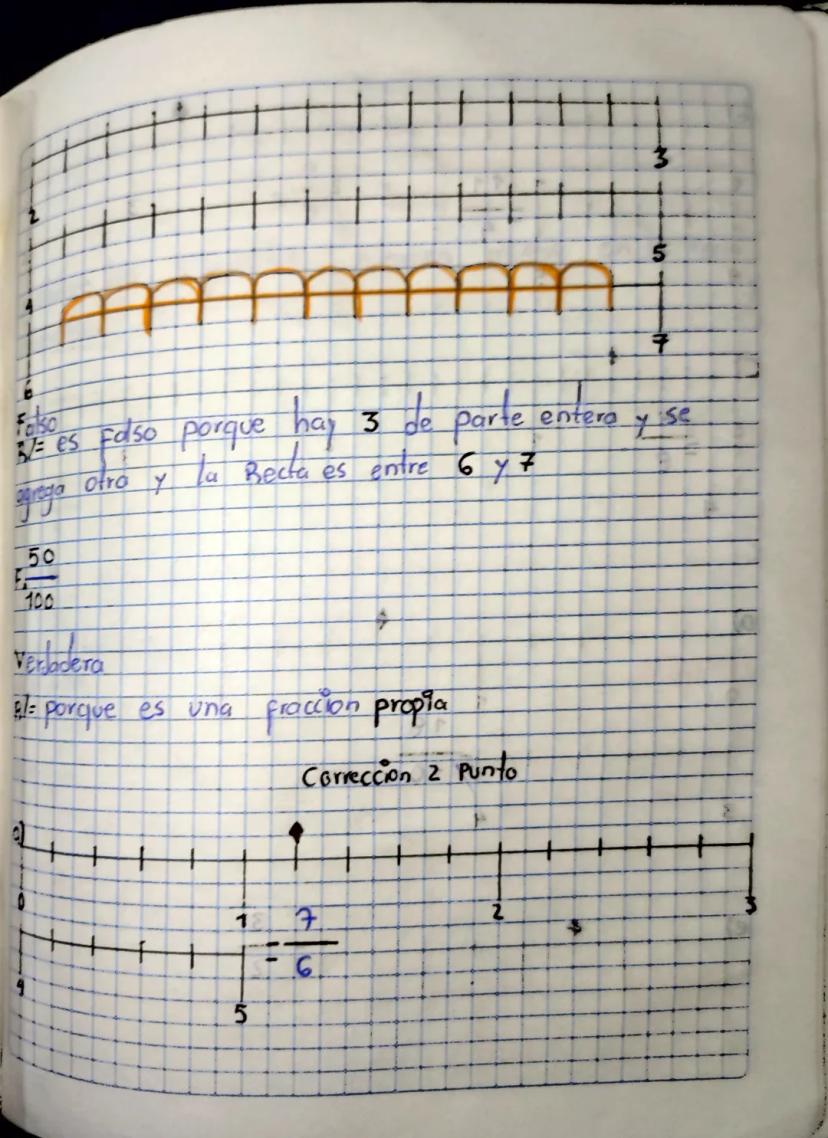 3
2
5
4
7
6
Falso
R/= es Falso porque hay 3 de parte entera y se
agrega otra y la Recta es entre 6 y 7
F. 50
100
Verdadera
R/= porque es una fraccion propia
Corrección 2 Punto
a)
0 1 2 3
= 7
6
4
5